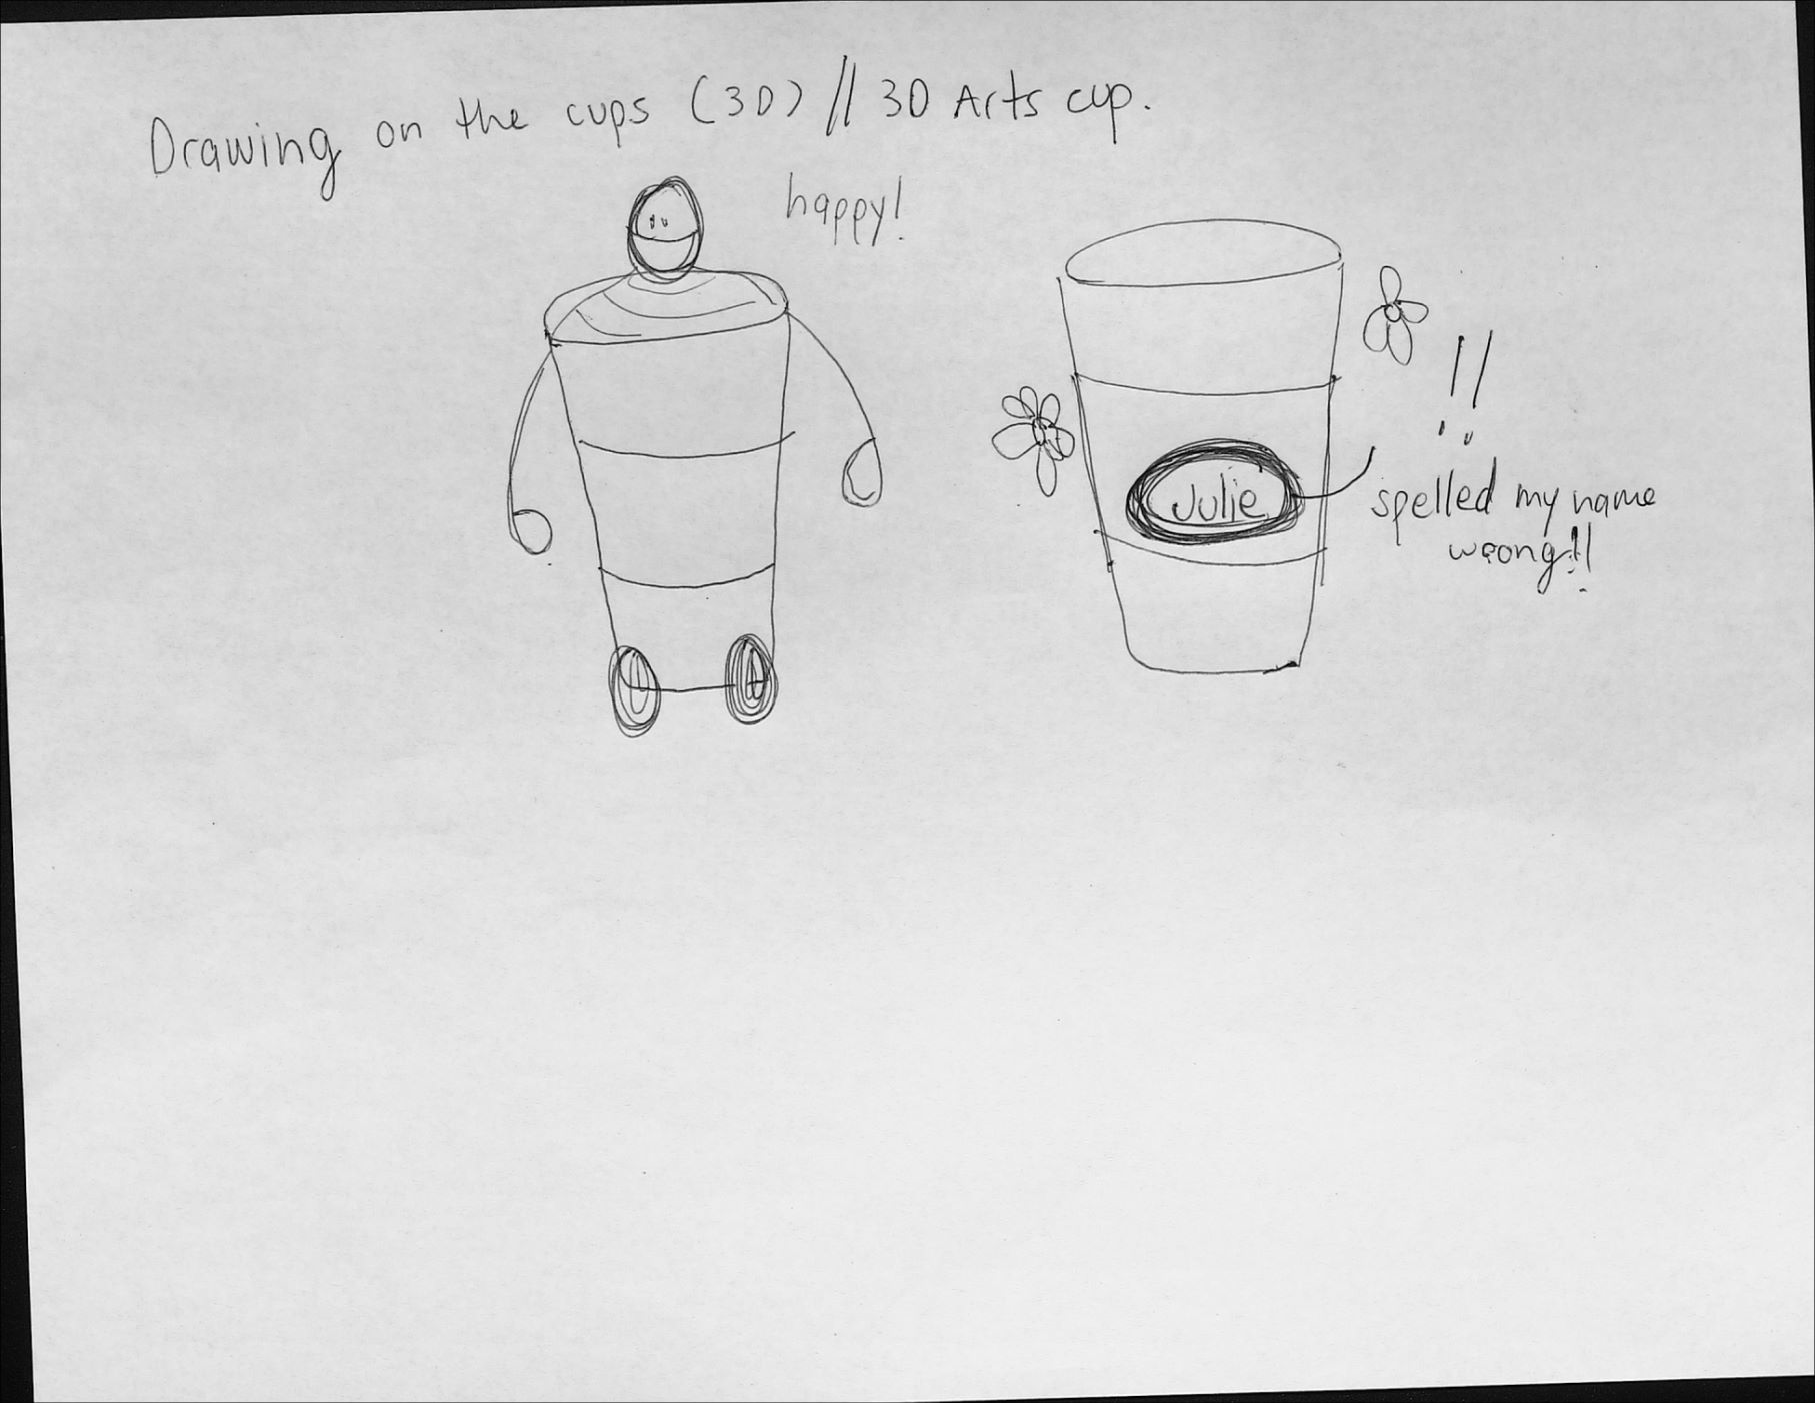 Drawing on the cups (3D) // 3D Arts cup.
happy!
!!
Julie
spelled my name
wrong!!